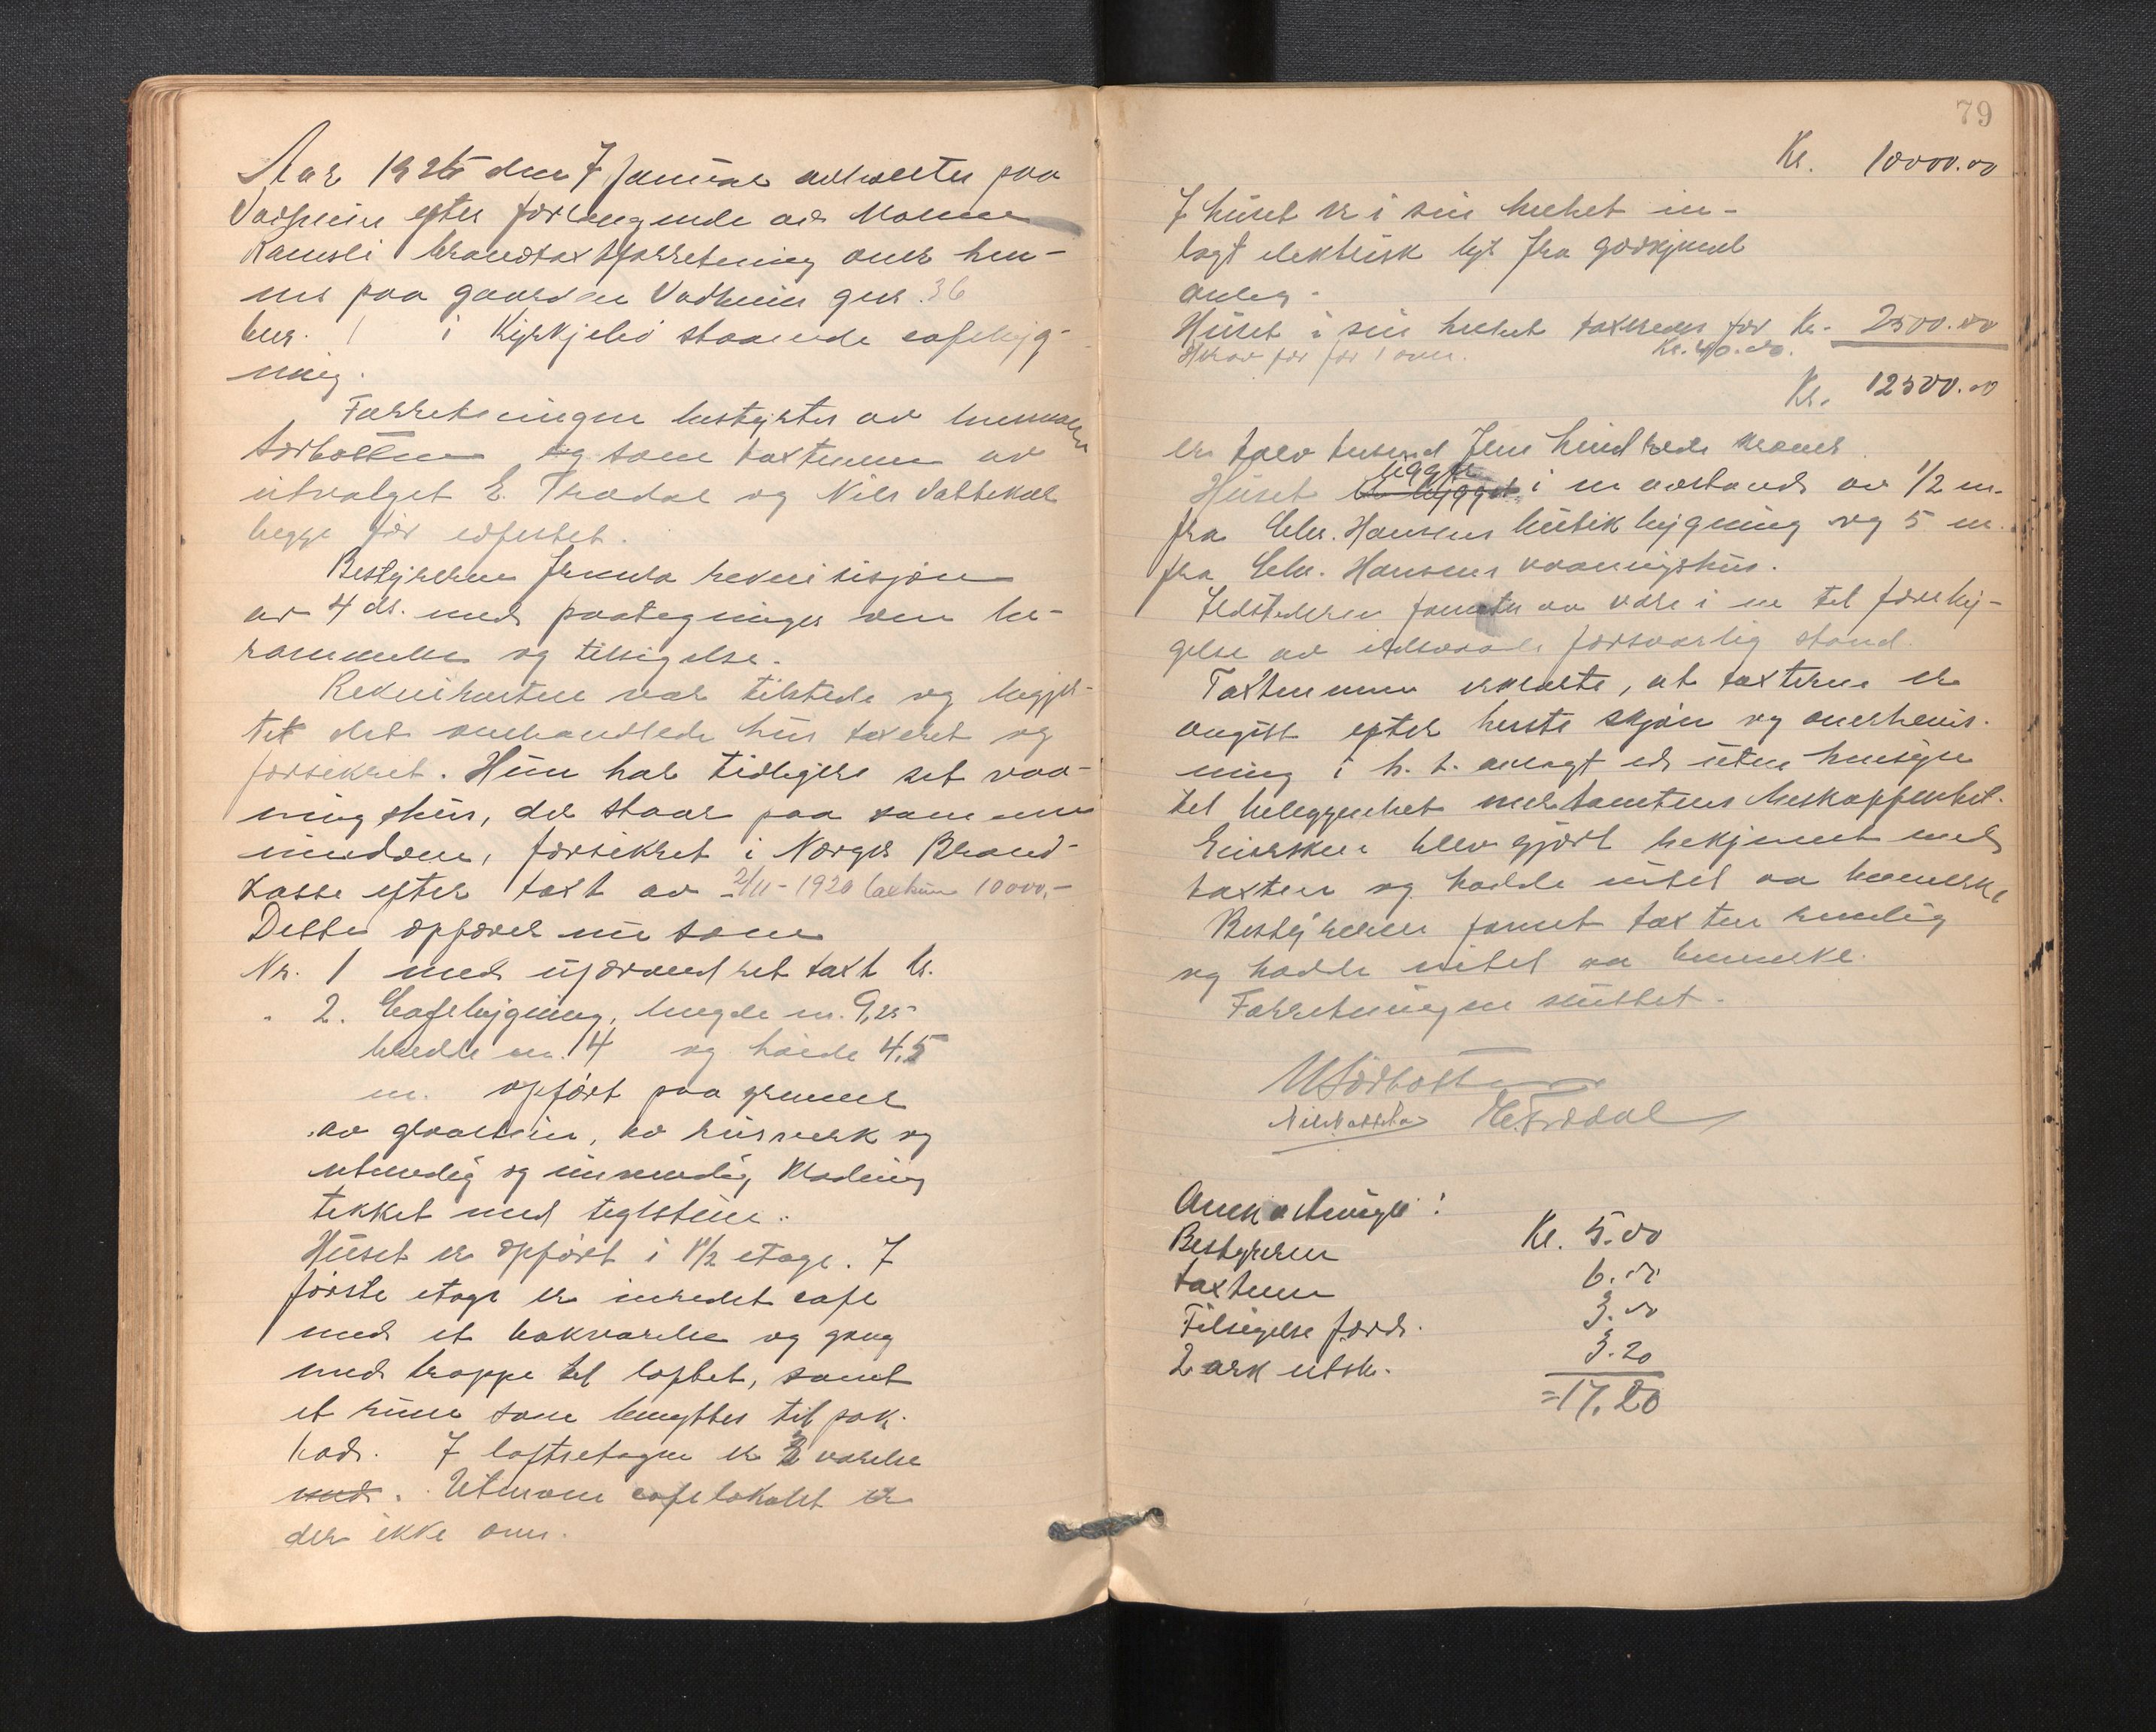 Aar 1926 den 7 januar avholdtes paa
Vadheim efter forlangende av Malene
Ramsli brandtaxtforretning over hen-
nes paa gaarden Vadheim gnr. 36
bnr. 1 i Kyrkjebö staaende cafebyg-
ning.
Forretningen bestyrtes av lensmann
Sörbotten og som taxtmenn av
utvalget E. Trædal og Nils Vattekar
begge för edfestet.
Bestyreren fremla rekvisisjon
av 4 ds. med paategninger om be-
rammelse og tilsigelse.
Rekvirenten var tilstede og begjær-
tet det omhandlede hus taxeret og
forsikret. Hun har tidligere set vaa-
ningshus, der staar paa samme
eiendom, forsikret i Norges Brand-
kasse efter taxt av 2/11-1920 taxtsum 10000,-
Dette opföres nu som
Nr. 1 med uforandret taxt kr.
" 2. Cafebygning, lengde m. 9,25
bredde m. 4 og höide 4,5
m. opfört paa grunnmur
av graasten, av reisverk og
utvendig og innvendig kledning
tekket med teglstein.
Huset er opfört i 1 1/2 etage. I
förste etage er inredet cafe
med et bakværelse og gang
med trappe til loftet, samt
et rum som benyttes til pak-
bod. I loftsetagen er 3 værelse
med. Utenom cafelokalet er
der ikke ovn.
79
Kr. 10000.00
I huset er i sin helhet in-
lagt elektrisk lys fra godkjent
anleg.
Huset i sin helhet taxeredes for Kr. 2500.00
Herav för for 1 ovn. Kr. 40.00.
Kr. 12500.00
er tolv tusend fem hundrede kroner.
Huset er bygget ligger i en avstand av 1/2 m.
fra Chr. Hansens butikbygning og 5 m.
fra Chr. Hansens vaaningshus.
Ildstederne fantes aa være i en til foreby-
gelse av ildsvaade forsvarlig stand.
Taxtmennene erklærte, at taxterne er
angitt efter beste skjön og overbevis-
ning i h. t. avlagt ed uten hensyn
til beliggenhet eller tomtens beskaffenhet.
Eiersken blev gjort bekjent med
taxten og hadde intet aa bemerke
Bestyreren fannt taxten rimelig
og hadde intet aa bemerke.
Forretningen sluttet.
M Sörbotten
Nils Vatteka E. Trædal
Omkostninger:
Bestyreren Kr. 5.00
taxtmenn 6.00
Tilsigelse ford. 3.00
2 ark utskr. 3.20
=17.20